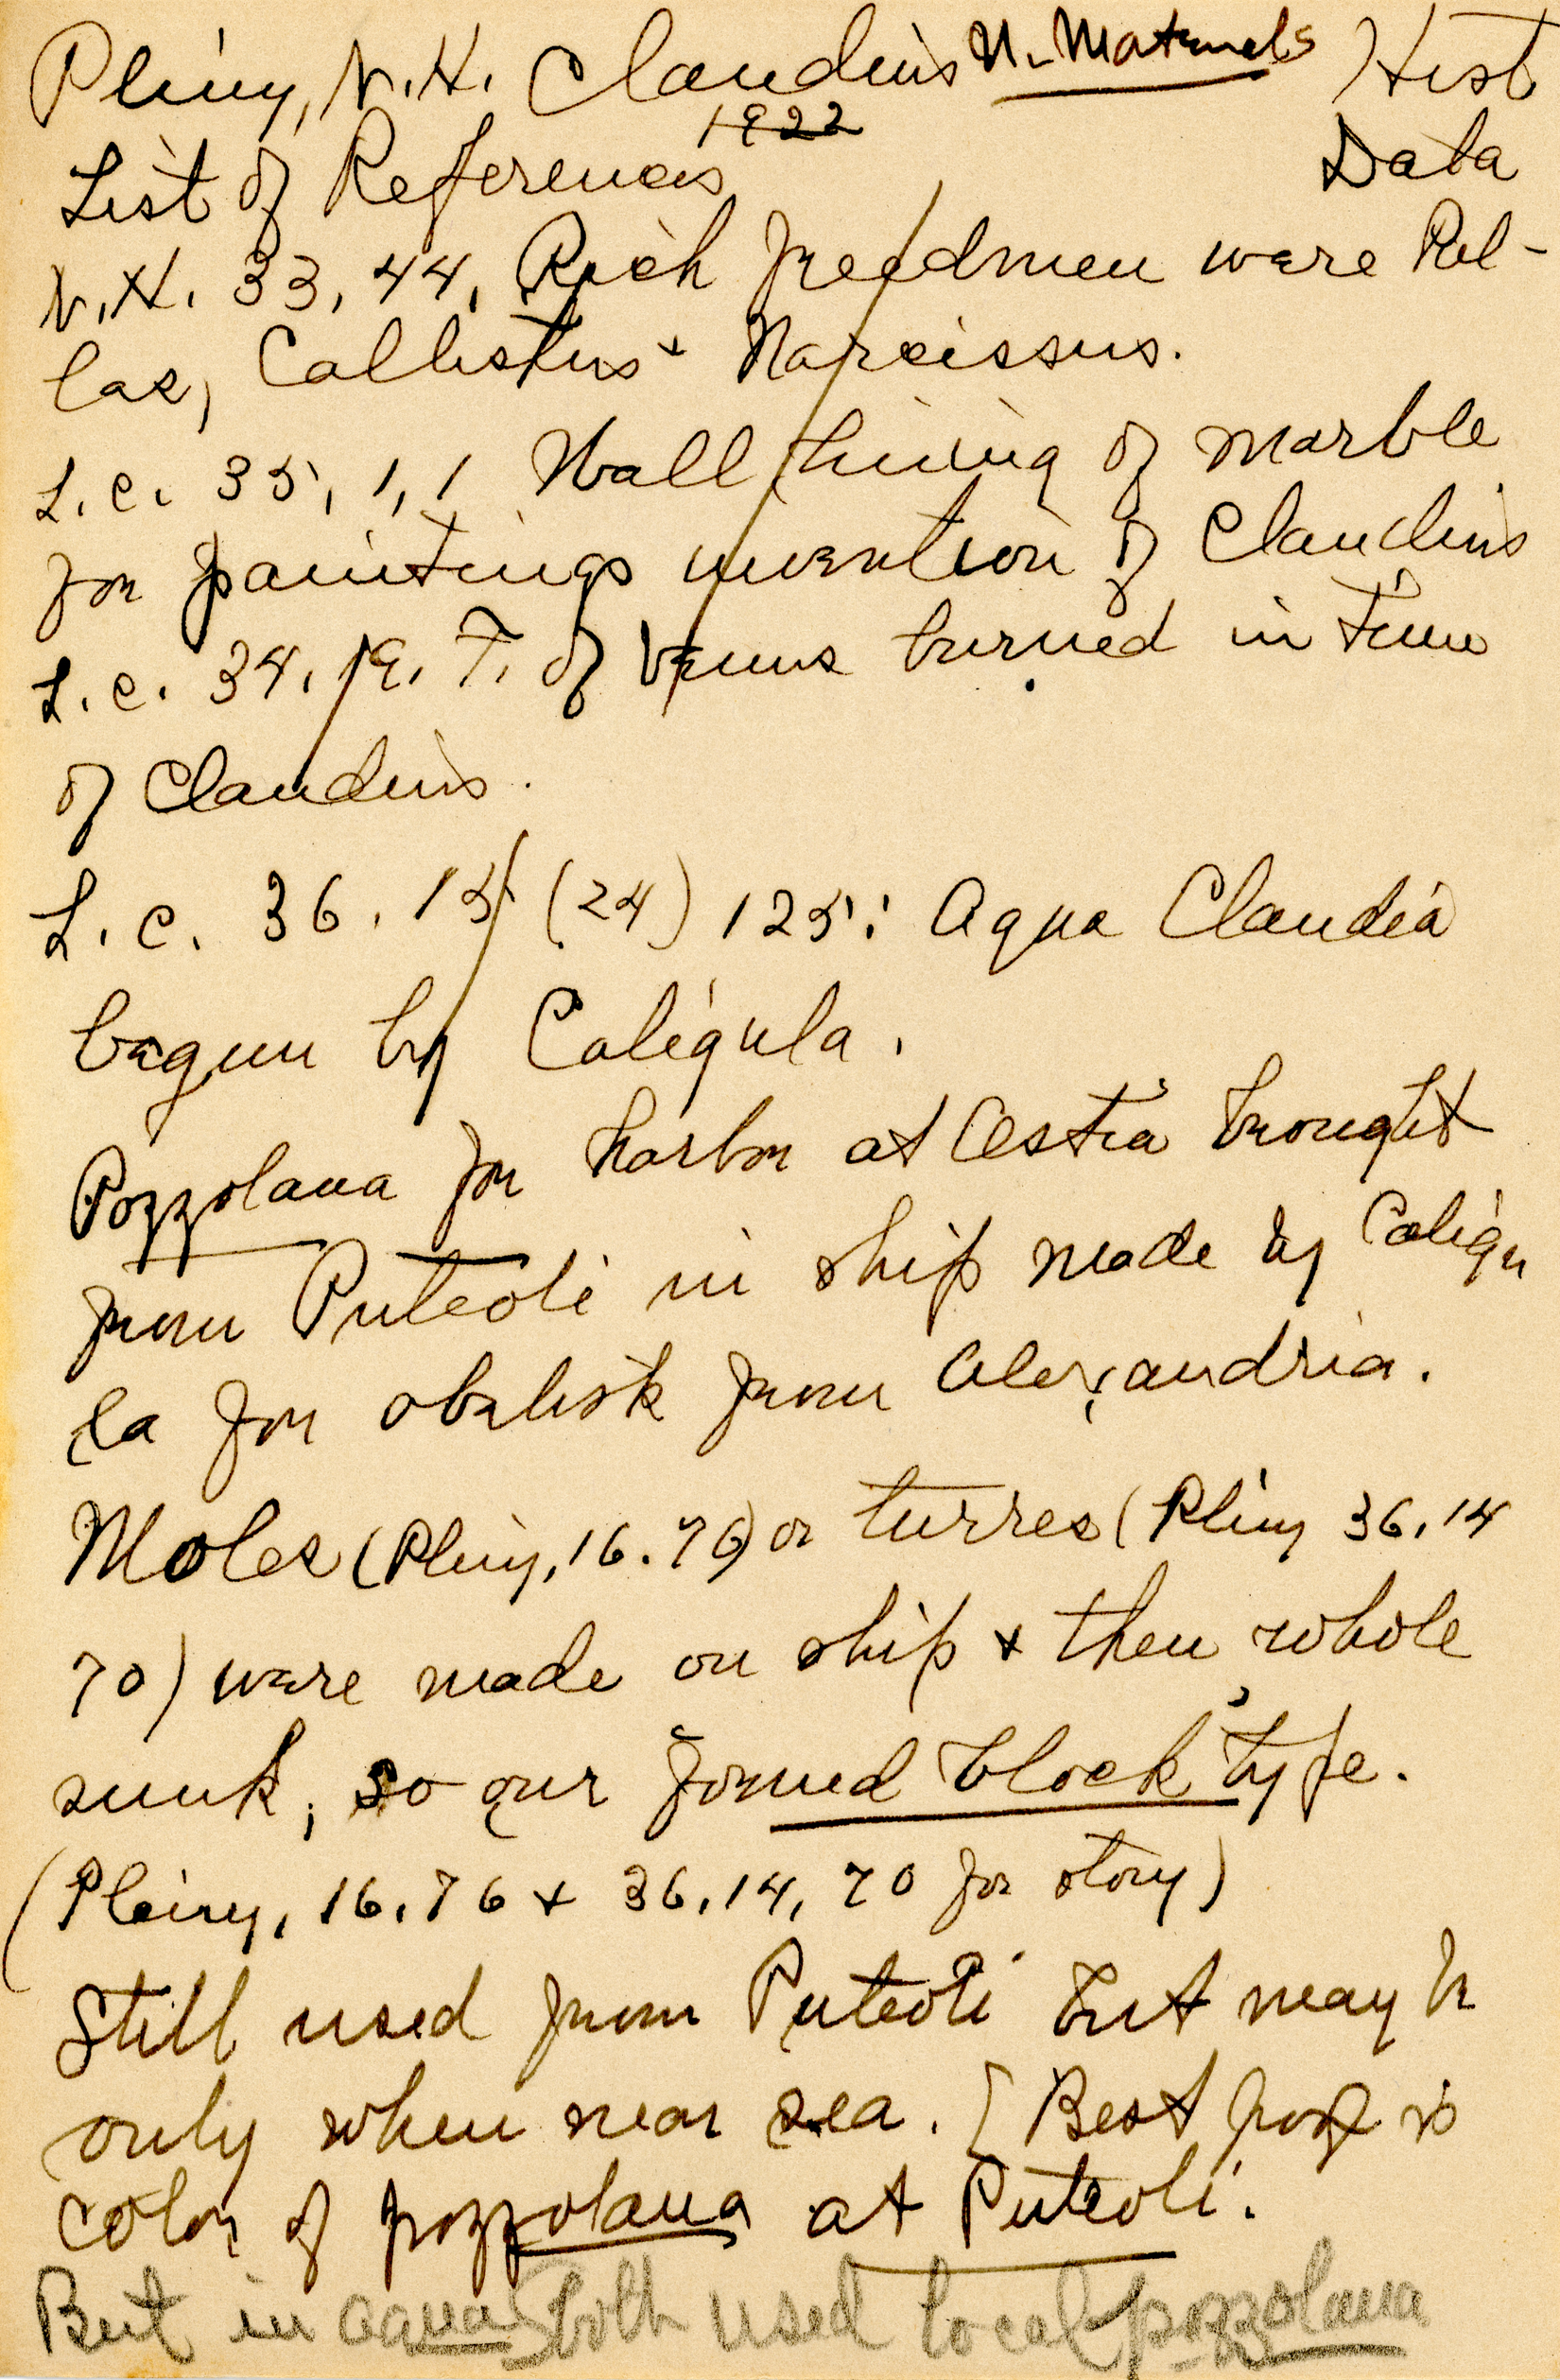 Pliny, N.H. Claudius N. Materials Hist
1922
List of References Data
N.H. 33, 44, Rich freedmen were Pal-
las, Callistus + Narcissus.
L.c. 35, 1, 1 Wall lining of marble
for paintings invention of Claudius
L.c. 34. 19. T. of Venus burned in time
of Claudius.
L.c. 36. 15 (24) 125: Aqua Claudia
begun by Caligula.
Pozzolana for harbor at Ostia brought
from Puteoli in ship made by Caligu
la for obelisk from Alexandria.
Moles (Pliny, 16.76) or turres (Pliny 36.14
70) were made on ship + then whole
sunk, so our formed block type.
(Pliny, 16.76 + 36.14, 70 for story)
Still used from Puteoli but may be
only when near sea. [Best is
color of pozzolana at Puteoli.
But in aquas both used local pozzolana